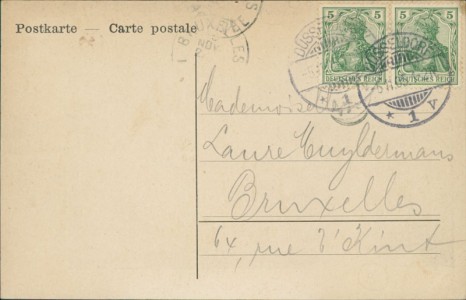 Postkarte — Carte postale
BRUXELLES
5 5
5 5
DEUTSCHES REICH DEUTSCHES REICH
DÜSSELDORF
DÜSSELDORF
* 1
* 1 v
Mademoiselle
Laure Muyldermans
Bruxelles
64, rue t'Kint